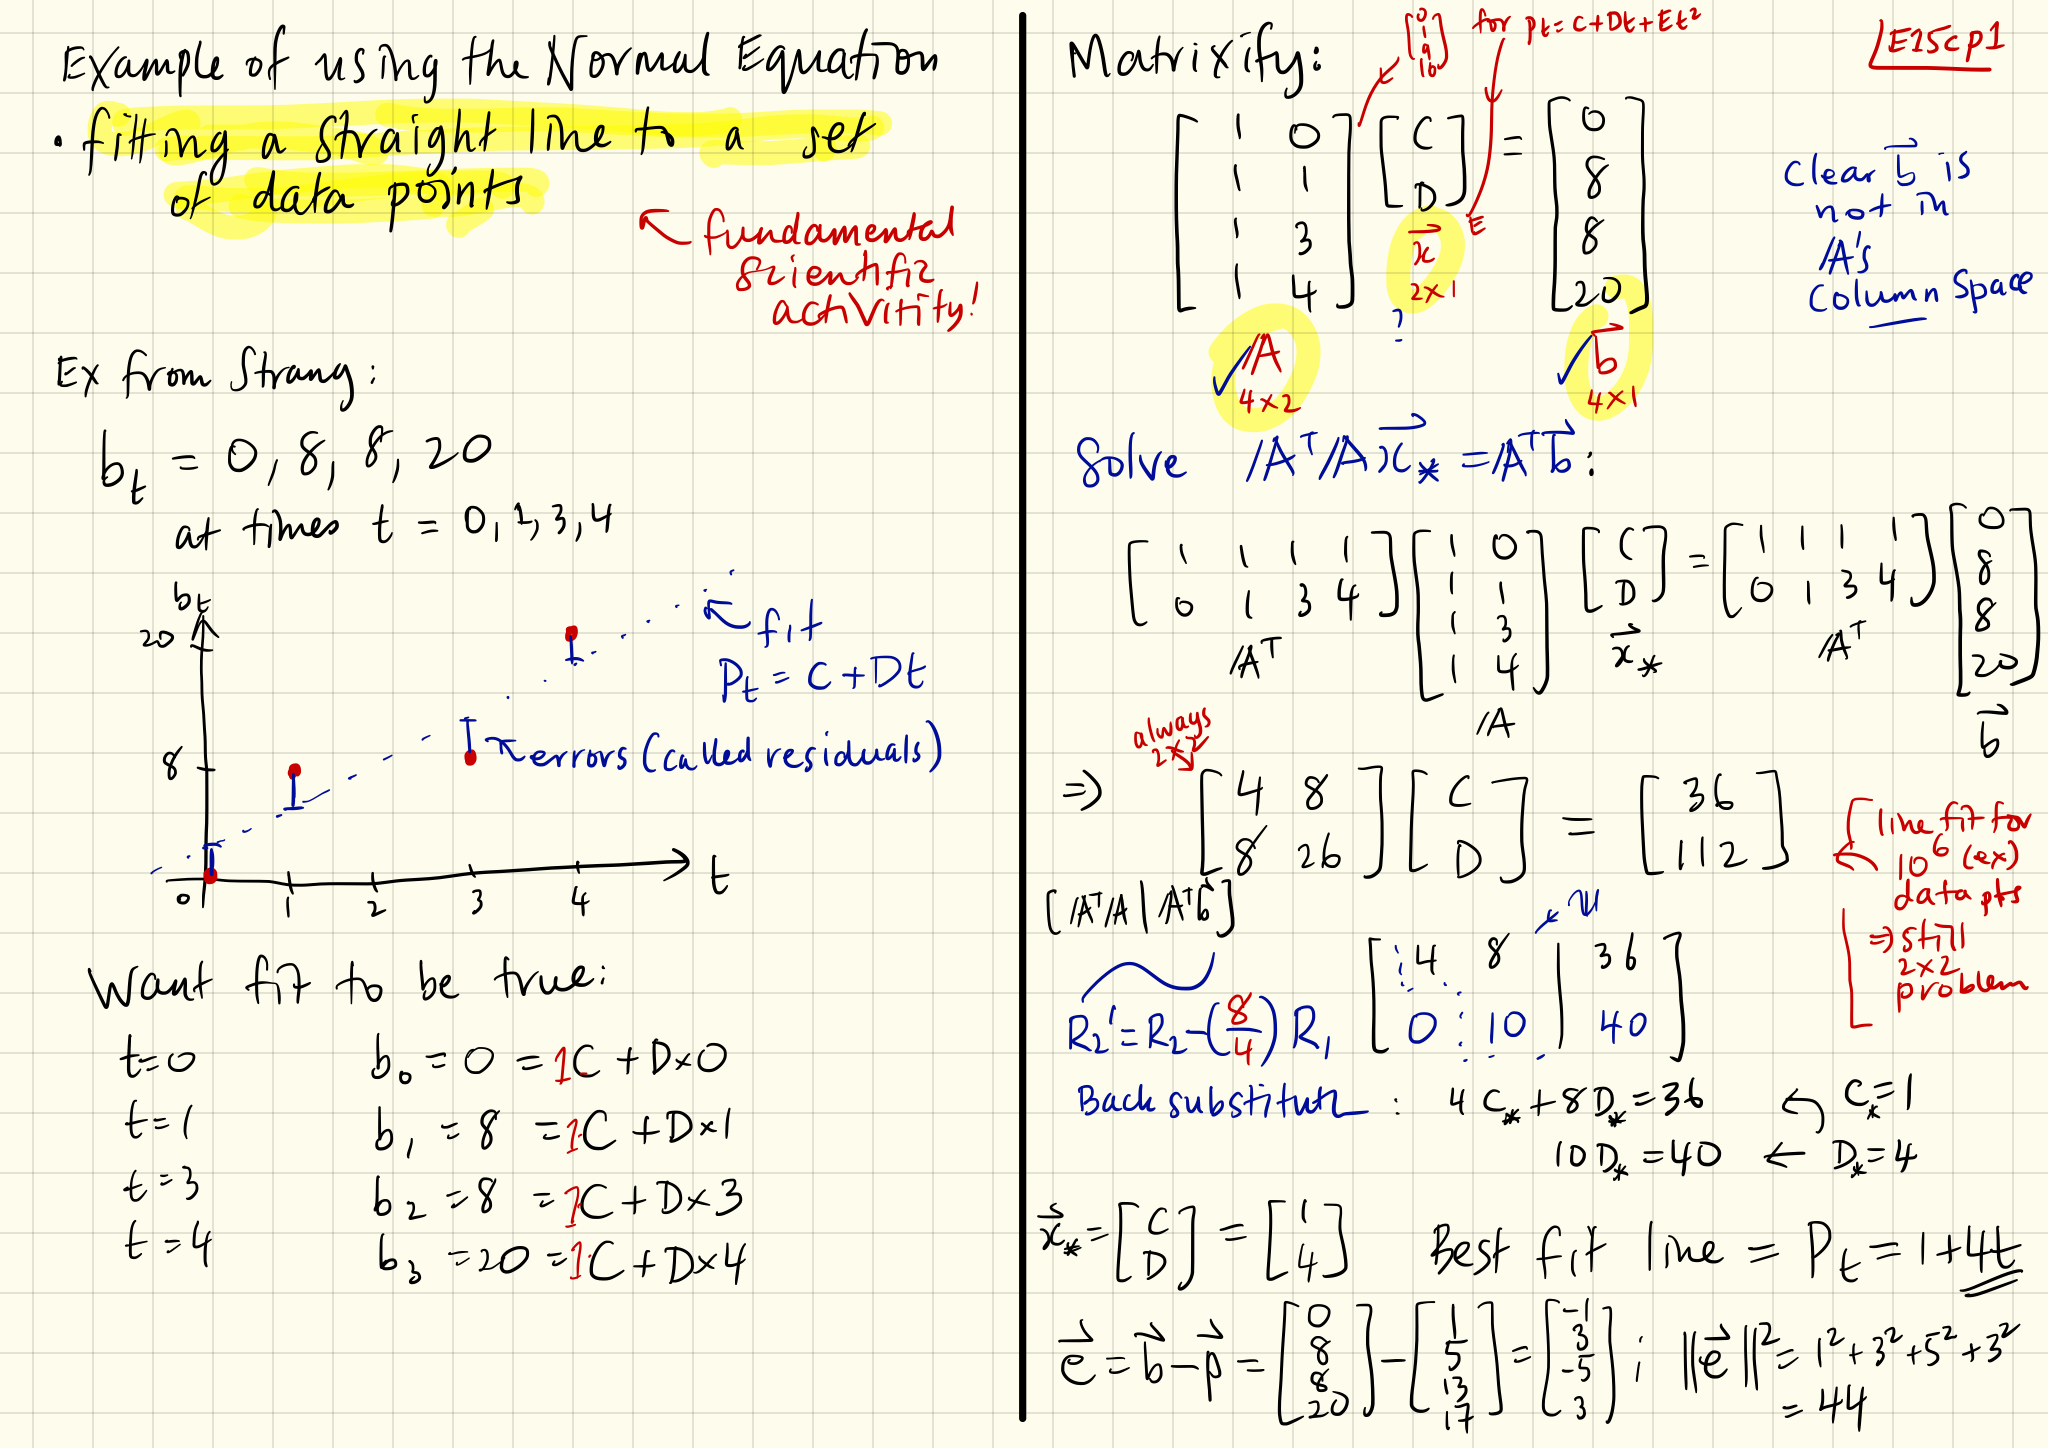 Example of using the Normal Equation
• fitting a straight line to a set
of data points
fundamental
scientific
activitity!
Ex from Strang:
b_t = 0, 8, 8, 20
at times t = 0, 1, 3, 4
b_t
20
8
0 1 2 3 4 t
fit
P_t = C + Dt
errors (called residuals)
Want fit to be true:
t=0 b_0 = 0 = 1C + D×0
t=1 b_1 = 8 = 1C + D×1
t=3 b_2 = 8 = 1C + D×3
t=4 b_3 = 20 = 1C + D×4
E15cp1
Matrixify:
[0 1 9 16] for p_t = C+Dt+Et²
[1 0; 1 1; 1 3; 1 4] [C; D] = [0; 8; 8; 20]
E
A 4×2
x⃗ 2×1
?
b⃗ 4×1
Clear b⃗ is
not in
A's
Column Space
Solve AᵀA x⃗_* = Aᵀb⃗:
[1 1 1 1; 0 1 3 4] [1 0; 1 1; 1 3; 1 4] [C; D] = [1 1 1 1; 0 1 3 4] [0; 8; 8; 20]
Aᵀ A x⃗_* Aᵀ b⃗
always
2×2
⇒ [4 8; 8 26] [C; D] = [36; 112]
line fit for
10⁶ (ex)
data pts
⇒ still
2×2
problem
[AᵀA | Aᵀb⃗]
U
R_2' = R_2 - (8/4) R_1 [4 8 | 36; 0 10 | 40]
Back substitute: 4C_* + 8D_* = 36 C_* = 1
10D_* = 40 ← D_* = 4
x⃗_* = [C; D] = [1; 4] Best fit line = P_t = 1+4t
e⃗ = b⃗ - p⃗ = [0; 8; 8; 20] - [1; 5; 13; 17] = [-1; 3; -5; 3]; ||e⃗||² = 1² + 3² + 5² + 3²
= 44